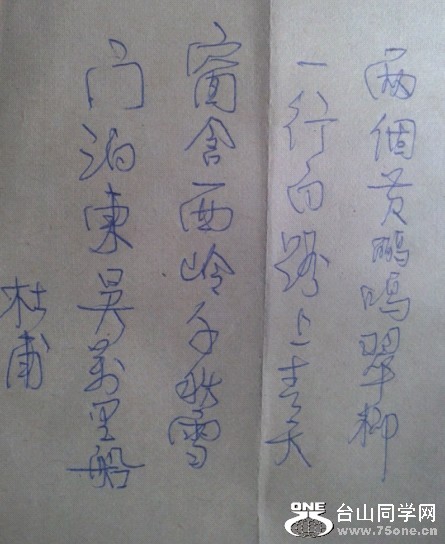 兩個黄鹂鸣翠柳
一行白路上青天
窗含西岭千秋雪
门泊東吴萬里船
杜甫
ONE 台山同学网
www.75one.cn